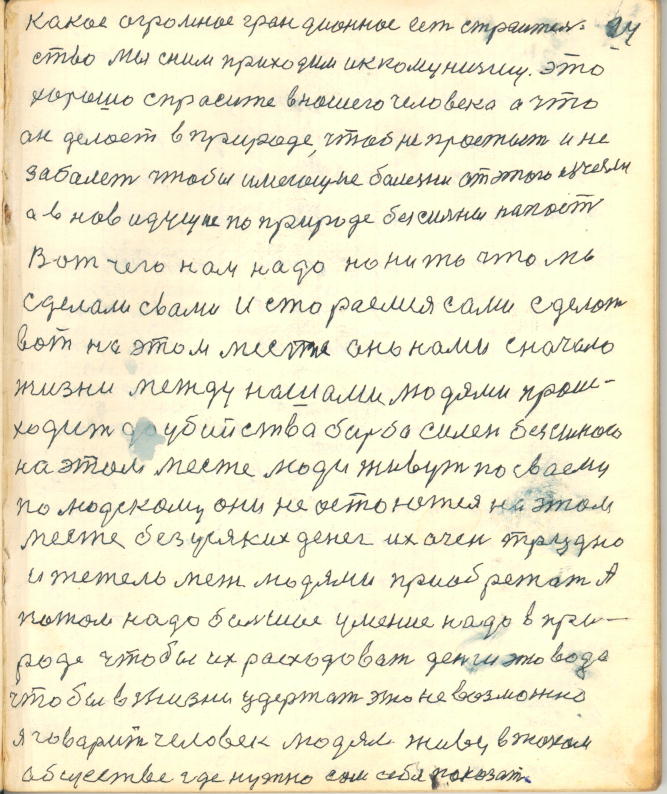 какое огромное грандионное ест страител- 24
ство мы сним приходим ик комунизму. это
хорошо спрасите внашего человека а что
ан делоет в природе, чтоб не простыт и не
забалет чтобы имеющие балезни от этого
а в нов идущие по природе безсилни напост
Вот чего нам надо
сделали свами и стораемся сами сделат
вот на этом месте оно нами сначало
жизни между нашими людями проис-
ходит до убийства барба силен безсилного
на этом месте люди живут по сваему
по людскому они не остонотся на этом
месте без усяких денег их очен трудно
и тежело меж людями приобретат А
потом надо болшие умение надо в при-
роде чтобы их расходоват денги это вода
чтобы в жизни удержат это невозможно
я говарит человек людям живу в таком
обсчестве где нужно сам себя показат.